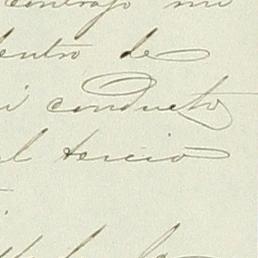 contrajo mi
dentro de
i conducto
el tercio